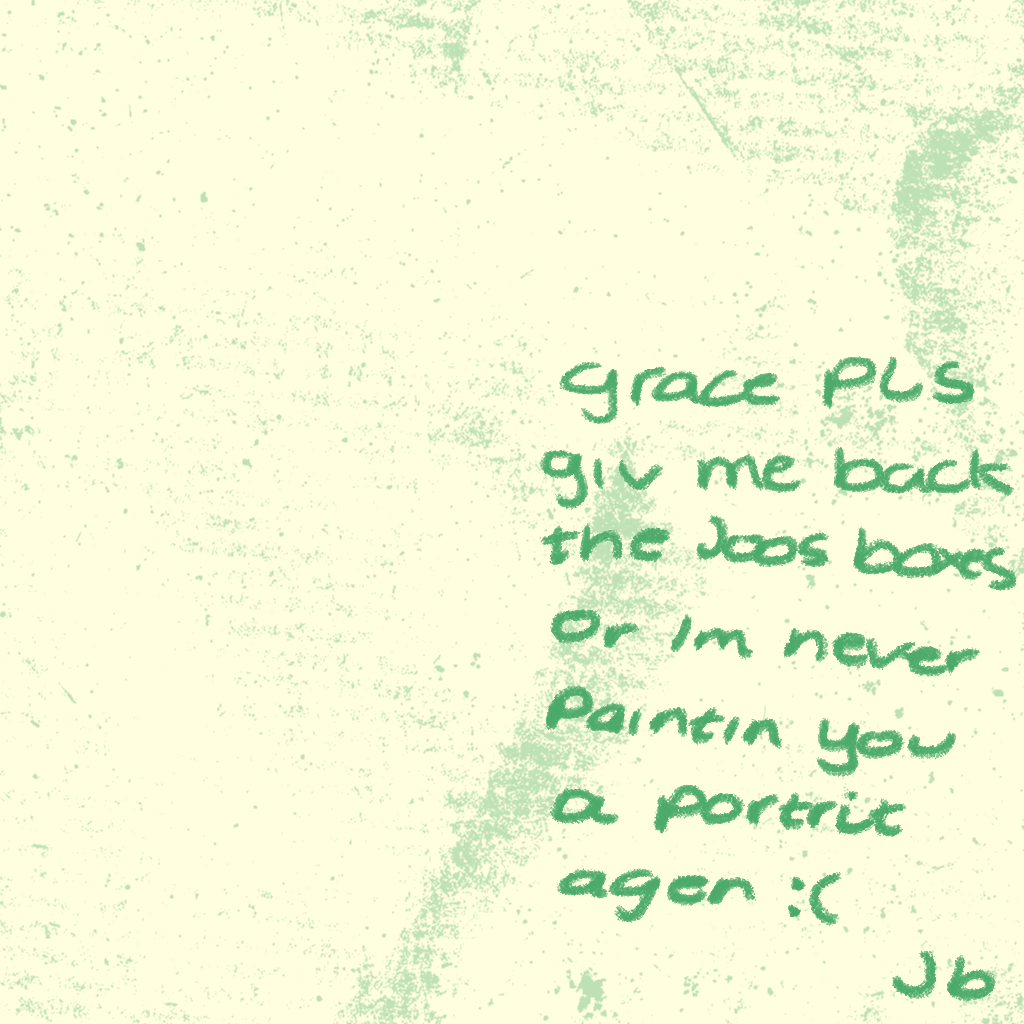 grace PLS
giv me back
the Joos boxes
or Im never
Paintin you
a portrit
agen :(
Jb